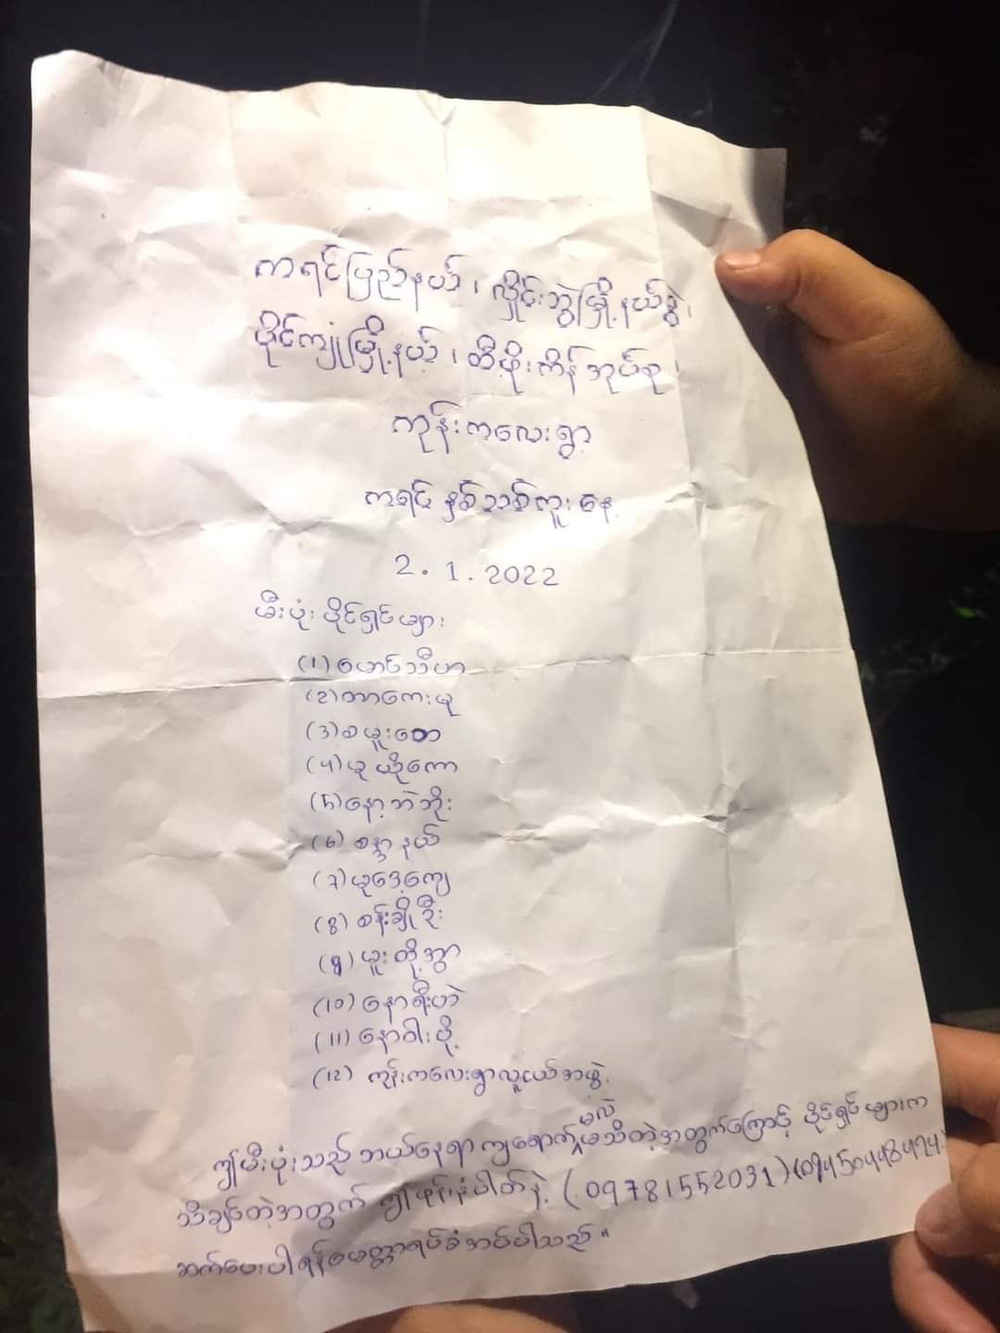 ကရင်ပြည်နယ်၊ လှိုင်းဘွဲမြို့နယ်ခွဲ၊
ပိုင်ကျုံမြို့နယ်၊ တီဖိုးကိန်အုပ်စု၊
ကုန်းကလေးရွာ
ကရင် နှစ်သစ်ကူးနေ့
2.1.2022
မီးပုံး ပိုင်ရှင်များ
(1) စောင်သီဟ
(2) တာကေးမူ
(3) စမူးစော
(4) မူယိုကော
(5) နော့ဘဲဘိုး
(6) စန္ဒာနယ်
(7) မူဒေ့ကျေ
(8) စန်းချိုဦး
(9) မူးထို့အွာ
(10) နောရီးဟဲ
(11) နောဝါးပို့
(12) ကုန်းကလေးရွာလူငယ်အဖွဲ့
ဤမီးပုံးသည် ဘယ်နေရာကျရောက်မှန်းမသိတဲ့အတွက်ကြောင့် ပိုင်ရှင်များက
သိချင်တဲ့အတွက် ဤဖုန်းနံပါတ်နဲ့ (09781552031)(09450448494)
ဆက်ပေးပါရန်မေတ္တာရပ်ခံအပ်ပါသည်။